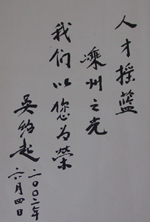 人才摇蓝
嵊州之光
我们以您为榮
吴纯起
二〇〇二年
六月四日